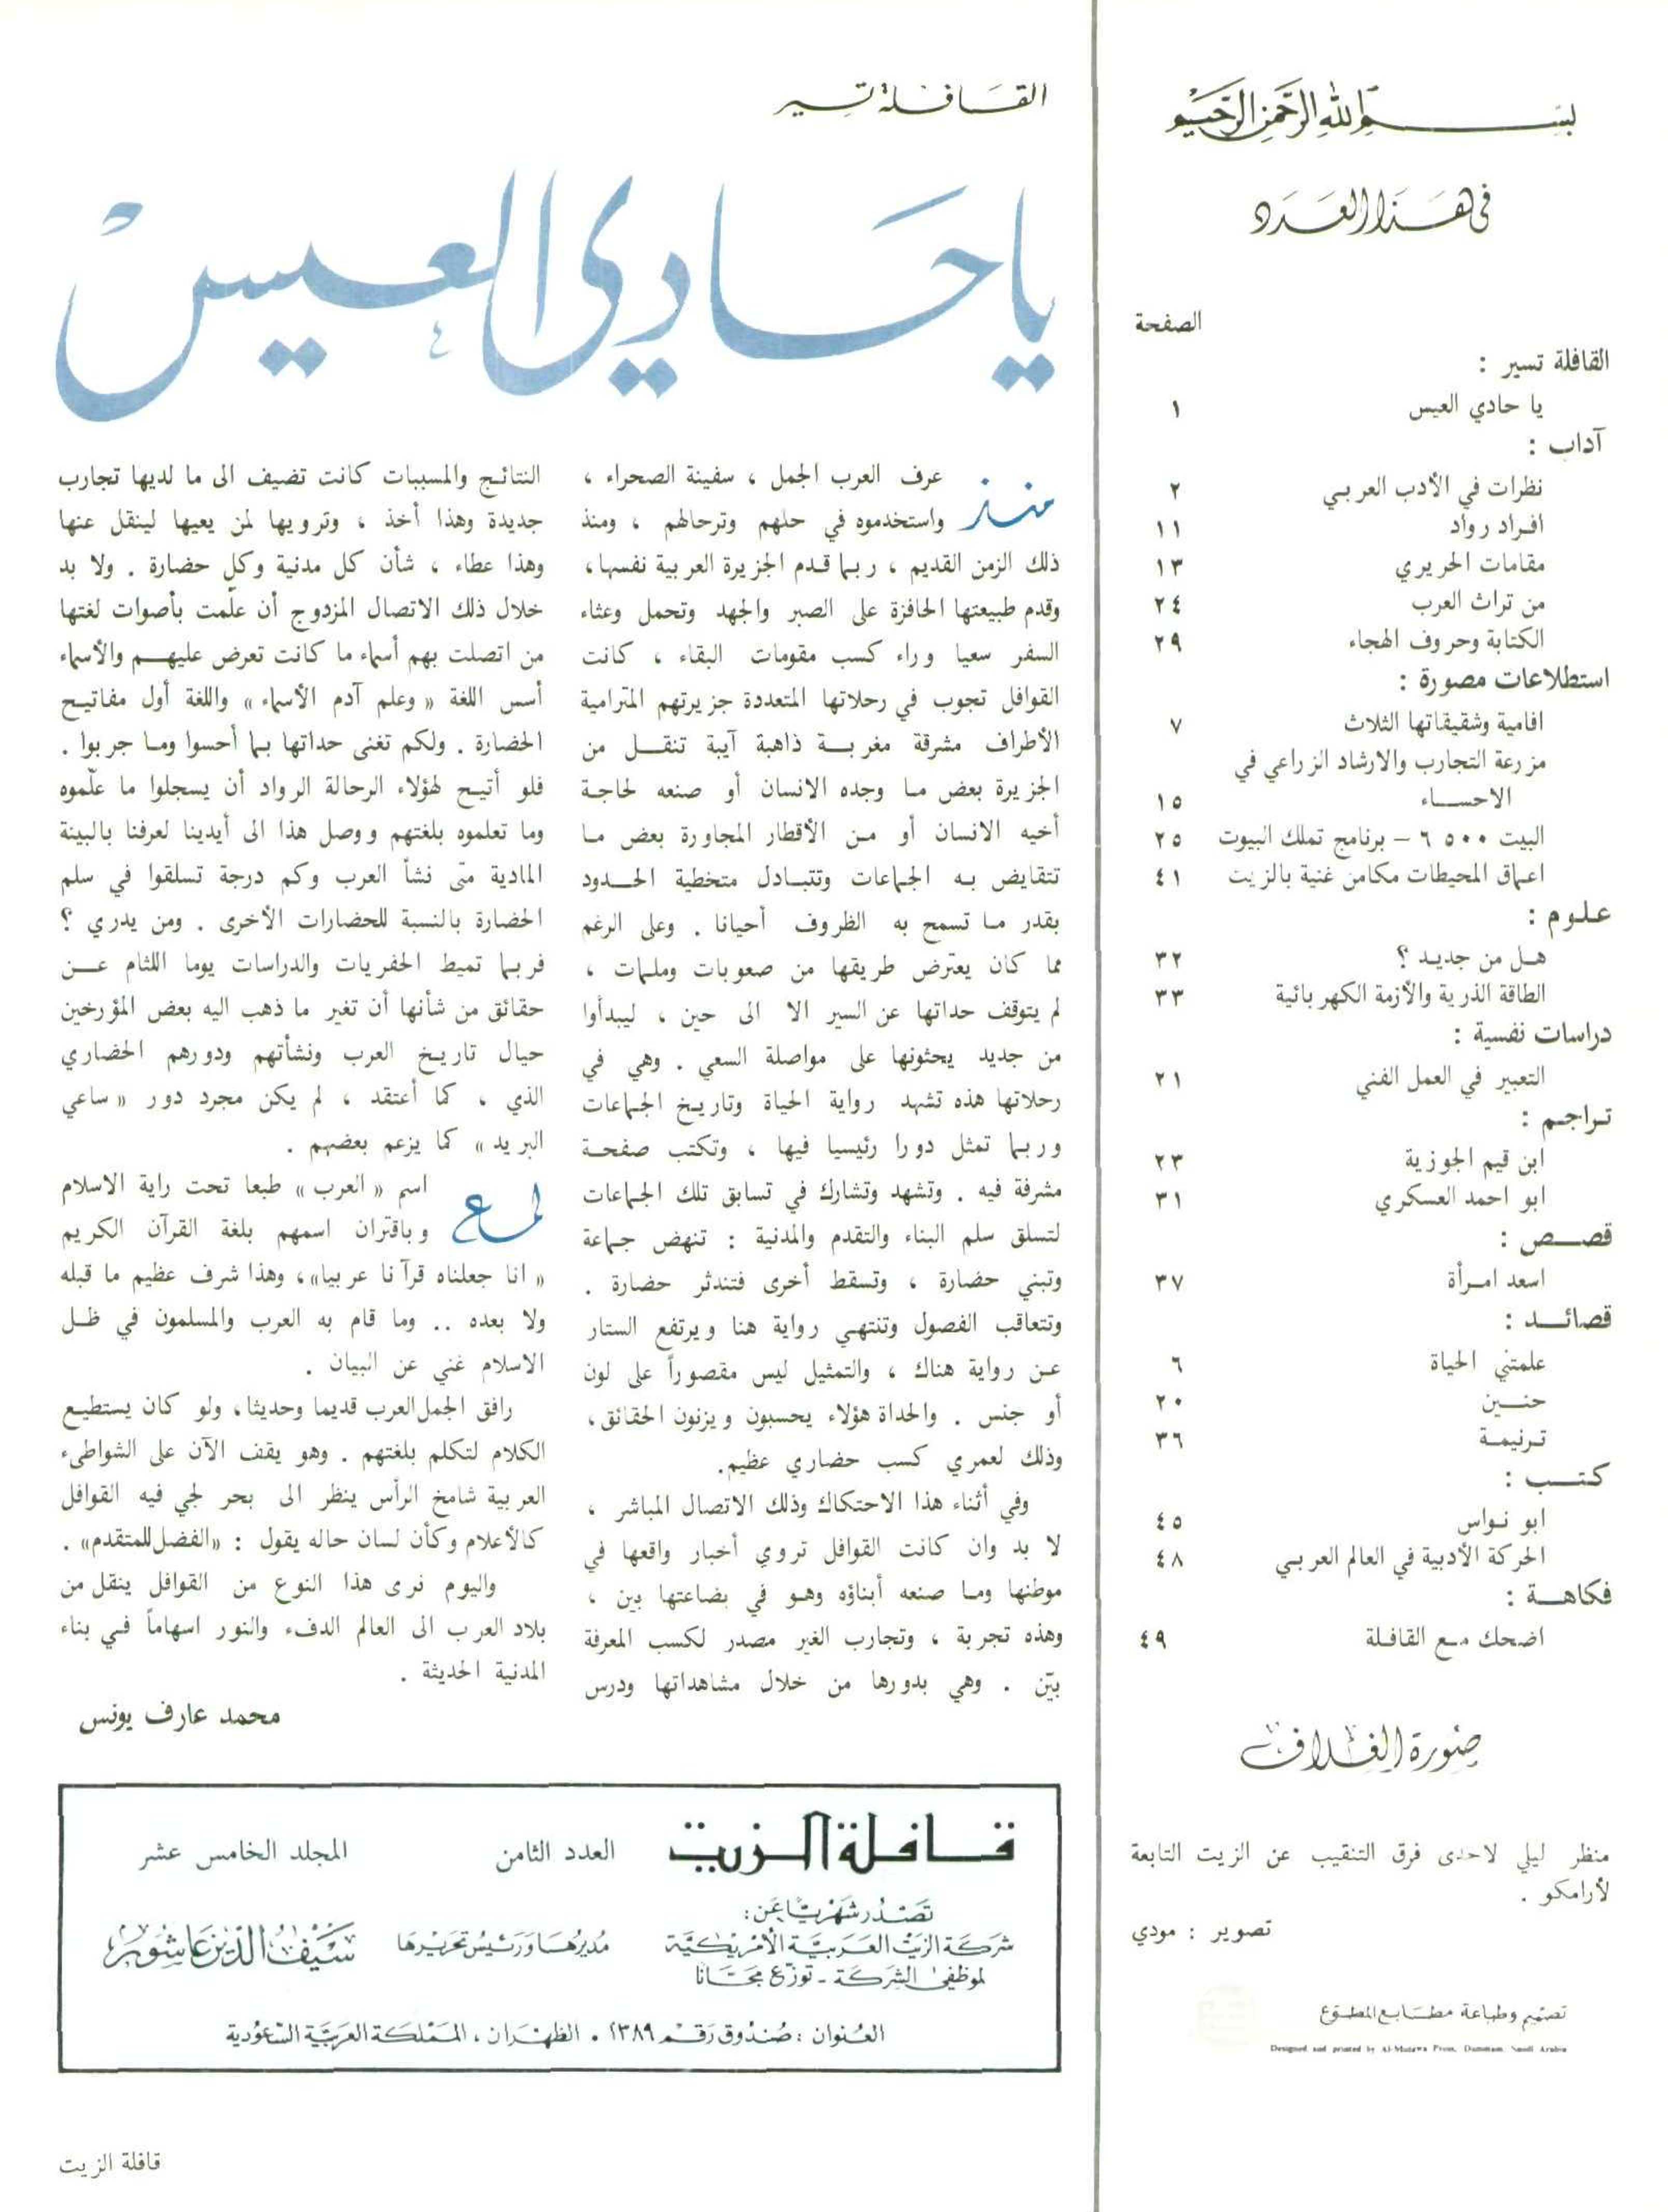 بسم الله الرحمن الرحيم
في هذا العدد
الصفحة
القافلة تسير :
يا حادي العيس ١
آداب :
نظرات في الأدب العربي ٢
افراد رواد ١١
مقامات الحريري ١٣
من تراث العرب ٢٤
الكتابة وحروف الهجاء ٢٩
استطلاعات مصورة :
افامية وشقيقاتها الثلاث ٧
مزرعة التجارب والارشاد الزراعي في
الاحساء ١٥
البيت ٦٥٠٠ – برنامج تملك البيوت ٢٥
اعماق المحيطات مكامن غنية بالزيت ٤١
علوم :
هل من جديد ؟ ٣٢
الطاقة الذرية والأزمة الكهربائية ٣٣
دراسات نفسية :
التعبير في العمل الفني ٢١
تراجم :
ابن قيم الجوزية ٢٣
ابو احمد العسكري ٣١
قصص :
اسعد امرأة ٣٧
قصائد :
علمتني الحياة ٦
حنين ٢٠
ترنيمة ٣٦
كتب :
ابو نواس ٤٥
الحركة الأدبية في العالم العربي ٤٨
فكاهة :
اضحك مع القافلة ٤٩
صورة الغلاف
منظر ليلي لاحدى فرق التنقيب عن الزيت التابعة
لأرامكو .
تصوير : مودي
تصميم وطباعة مطابع المطوع
Designed and printed by Al-Mutawa Press, Dammam, Saudi Arabia
القافلة تسير
يا حادي العيس
منذ عرف العرب الجمل ، سفينة الصحراء ،
واستخدموه في حلهم وترحالهم ، ومنذ
ذلك الزمن القديم ، ربما قدم الجزيرة العربية نفسها ،
وقدم طبيعتها الحافزة على الصبر والجهد وتحمل وعثاء
السفر سعيا وراء كسب مقومات البقاء ، كانت
القوافل تجوب في رحلاتها المتعددة جزيرتهم المترامية
الأطراف مشرقة مغربة ذاهبة آيبة تنقل من
الجزيرة بعض ما وجده الانسان أو صنعه لحاجة
أخيه الانسان أو من الأقطار المجاورة بعض ما
تتقايض به الجماعات وتتبادل متخطية الحدود
بقدر ما تسمح به الظروف أحيانا . وعلى الرغم
مما كان يعترض طريقها من صعوبات وملمات ،
لم يتوقف حداتها عن السير الا الى حين ، ليبدأوا
من جديد يحثونها على مواصلة السعي . وهي في
رحلاتها هذه تشهد رواية الحياة وتاريخ الجماعات
وربما تمثل دورا رئيسيا فيها ، وتكتب صفحة
مشرفة فيه . وتشهد وتشارك في تسابق تلك الجماعات
لتسلق سلم البناء والتقدم والمدنية : تنهض جماعة
وتبني حضارة ، وتسقط أخرى فتندثر حضارة .
وتتعاقب الفصول وتنتهي رواية هنا ويرتفع الستار
عن رواية هناك ، والتمثيل ليس مقصوراً على لون
أو جنس . والحداة هؤلاء يحسبون ويزنون الحقائق ،
وذلك لعمري كسب حضاري عظيم.
وفي أثناء هذا الاحتكاك وذلك الاتصال المباشر ،
لا بد وان كانت القوافل تروي أخبار واقعها في
موطنها وما صنعه أبناؤه وهو في بضاعتها بين ،
وهذه تجربة ، وتجارب الغير مصدر لكسب المعرفة
بيّن . وهي بدورها من خلال مشاهداتها ودرس
النتائج والمسببات كانت تضيف الى ما لديها تجارب
جديدة وهذا أخذ ، وترويها لمن يعيها لينقل عنها
وهذا عطاء ، شأن كل مدنية وكل حضارة . ولا بد
خلال ذلك الاتصال المزدوج أن علّمت بأصوات لغتها
من اتصلت بهم أسماء ما كانت تعرض عليهم والأسماء
أسس اللغة « وعلم آدم الأسماء » واللغة أول مفاتيح
الحضارة . ولكم تغنى حداتها بما أحسوا وما جربوا .
فلو أتيح لهؤلاء الرحالة الرواد أن يسجلوا ما علّموه
وما تعلموه بلغتهم ووصل هذا الى أيدينا لعرفنا بالبينة
المادية متى نشأ العرب وكم درجة تسلقوا في سلم
الحضارة بالنسبة للحضارات الأخرى . ومن يدري ؟
فربما تميط الحفريات والدراسات يوما اللثام عن
حقائق من شأنها أن تغير ما ذهب اليه بعض المؤرخين
حيال تاريخ العرب ونشأتهم ودورهم الحضاري
الذي ، كما أعتقد ، لم يكن مجرد دور « ساعي
البريد » كما يزعم بعضهم .
لمع اسم « العرب » طبعا تحت راية الاسلام
وباقتران اسمهم بلغة القرآن الكريم
« انا جعلناه قرآنا عربيا» ، وهذا شرف عظيم ما قبله
ولا بعده .. وما قام به العرب والمسلمون في ظل
الاسلام غني عن البيان .
رافق الجمل العرب قديما وحديثا ، ولو كان يستطيع
الكلام لتكلم بلغتهم . وهو يقف الآن على الشواطىء
العربية شامخ الرأس ينظر الى بحر لجي فيه القوافل
كالأعلام وكأن لسان حاله يقول : «الفضل للمتقدم» .
واليوم نرى هذا النوع من القوافل ينقل من
بلاد العرب الى العالم الدفء والنور اسهاماً في بناء
المدنية الحديثة .
محمد عارف يونس
قافلة الزيت العدد الثامن المجلد الخامس عشر
تصدر شهريًا عن :
شركة الزيت العربية الأمريكية مديرها ورئيس تحريرها سيف الدين عاشور
لموظفي الشركة - توزع مجانًا
العنوان : صندوق رقم ١٣٨٩ . الظهران ، المملكة العربية السعودية
قافلة الزيت